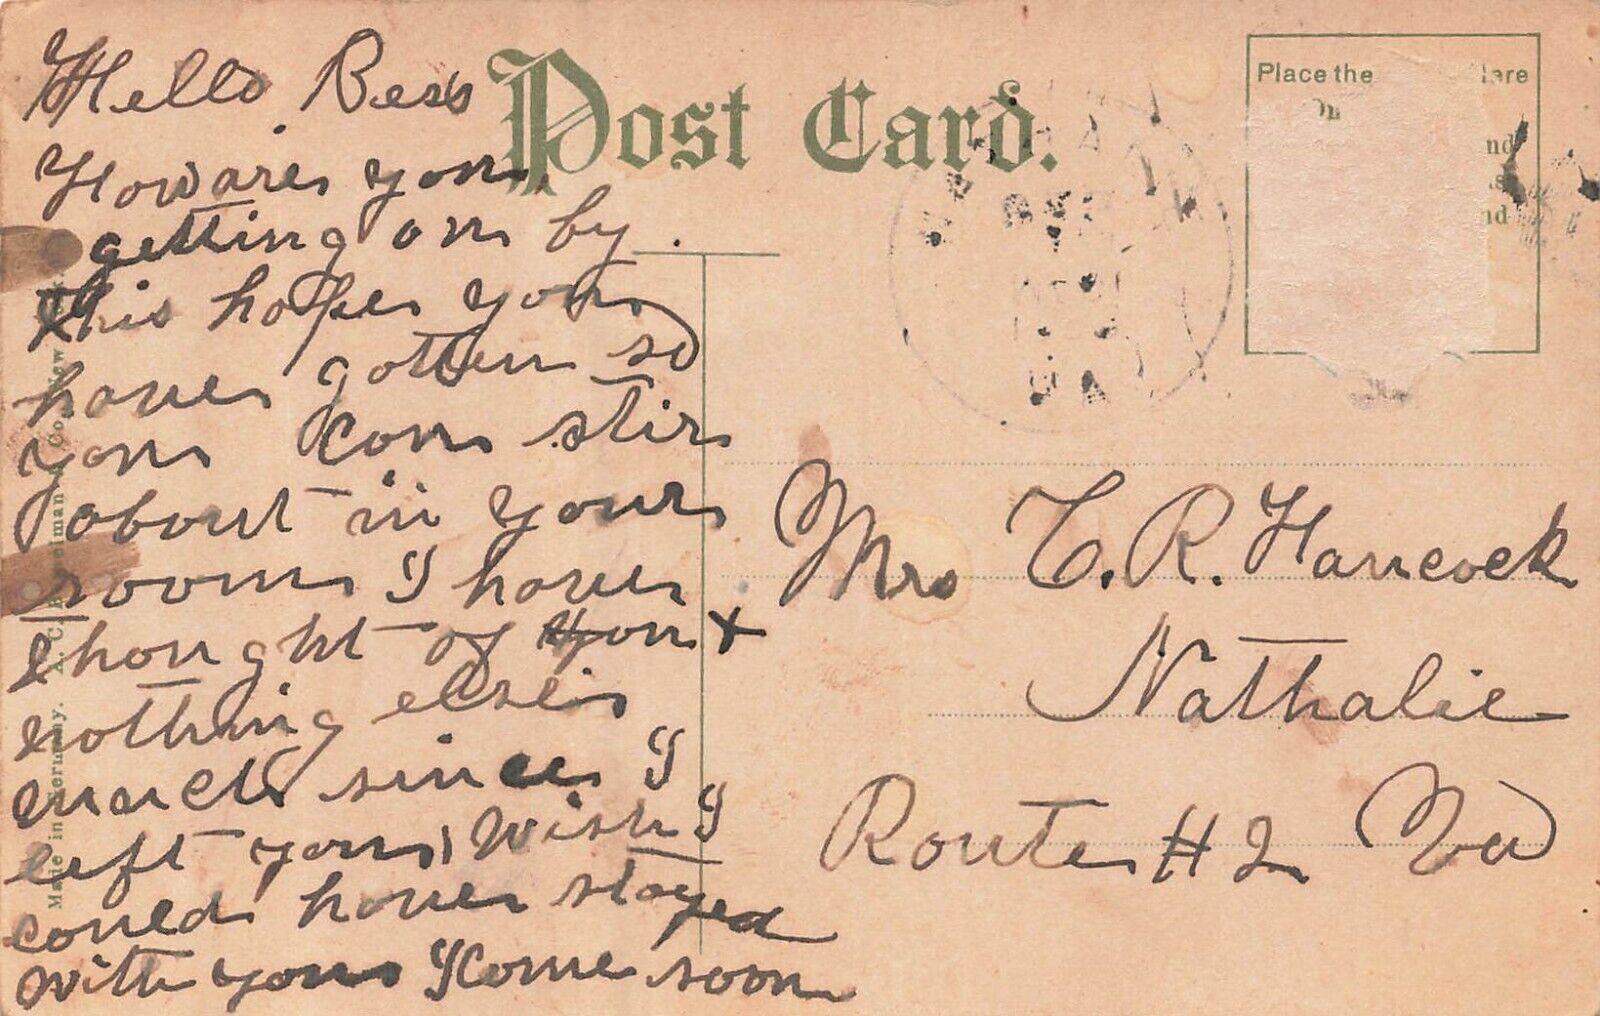 Post Card.
Place the
Here
nd
nd
Hello Bess
How are you
getting on by
this hope you
have gotten so
you can stir
about in your
room I have
thought of you +
nothing else
much since I
left you, Wish I
could have stayed
with you I Come soon
Mrs C. R. Hancock
Nathalie
Route # 2 Va
Made in Germany. A. C. Bosselman & Co., New